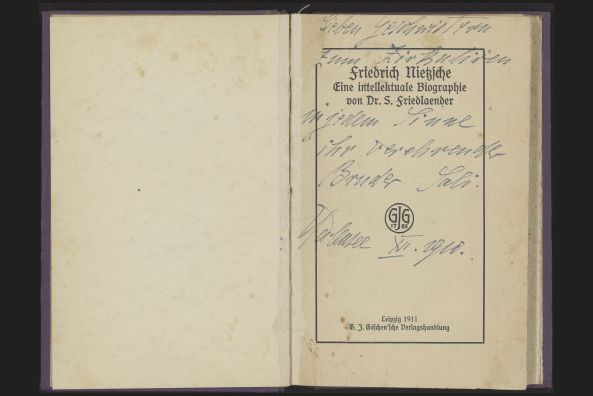 Lieben Geschwistern
zum Zirkulieren
Friedrich Nietzsche
Eine intellektuale Biographie
von Dr. S. Friedlaender
in jedem Sinne
ihr verehrender
Bruder Sali.
GJG
17 85
Halensee XII. 1918.
Leipzig 1911
G. J. Göschen'sche Verlagshandlung